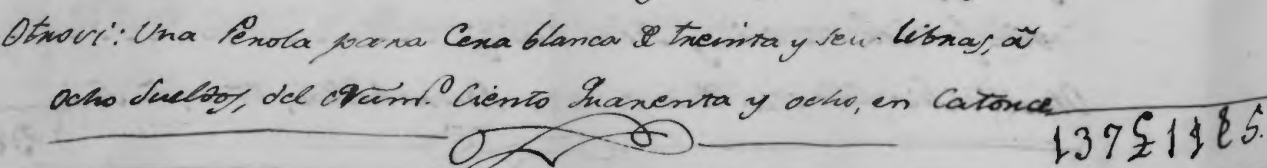 Otrosi: Una Perola para Cera blanca de treinta y seis libras, á
ocho sueldos, del Num.º Ciento Quarenta y ocho, en Catorce
137£11